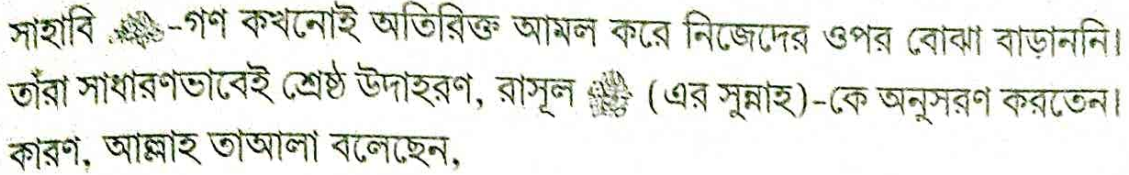 সাহাবি -গণ কখনোই অতিরিক্ত আমল করে নিজেদের ওপর বোঝা বাড়াননি।
তাঁরা সাধারণভাবেই শ্রেষ্ঠ উদাহরণ, রাসূল ﷺ (এর সুন্নাহ)-কে অনুসরণ করতেন।
কারণ, আল্লাহ তাআলা বলেছেন,